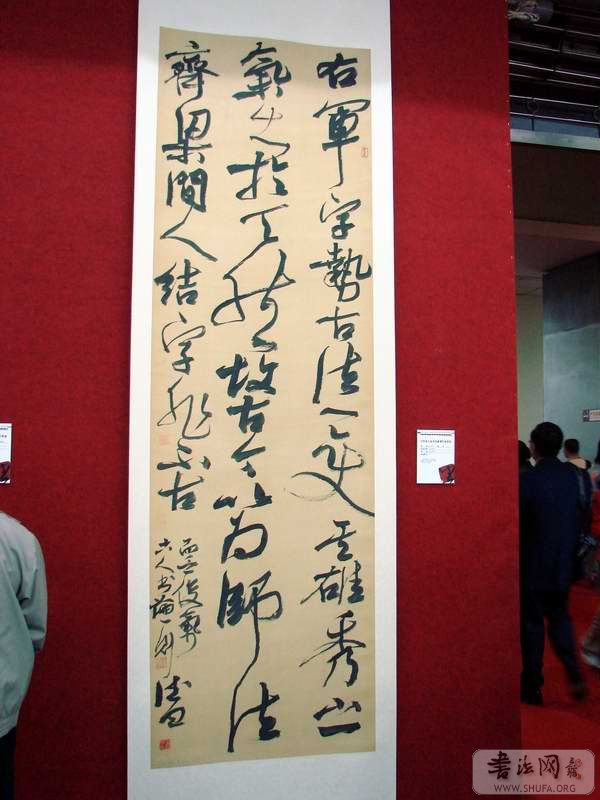 右軍字勢古法一變其雄秀之
氣出於天然故古今以為師法
齊梁間人結字非不古
而乏俊氣
古人書論一則
書法网
WWW.SHUFA.ORG